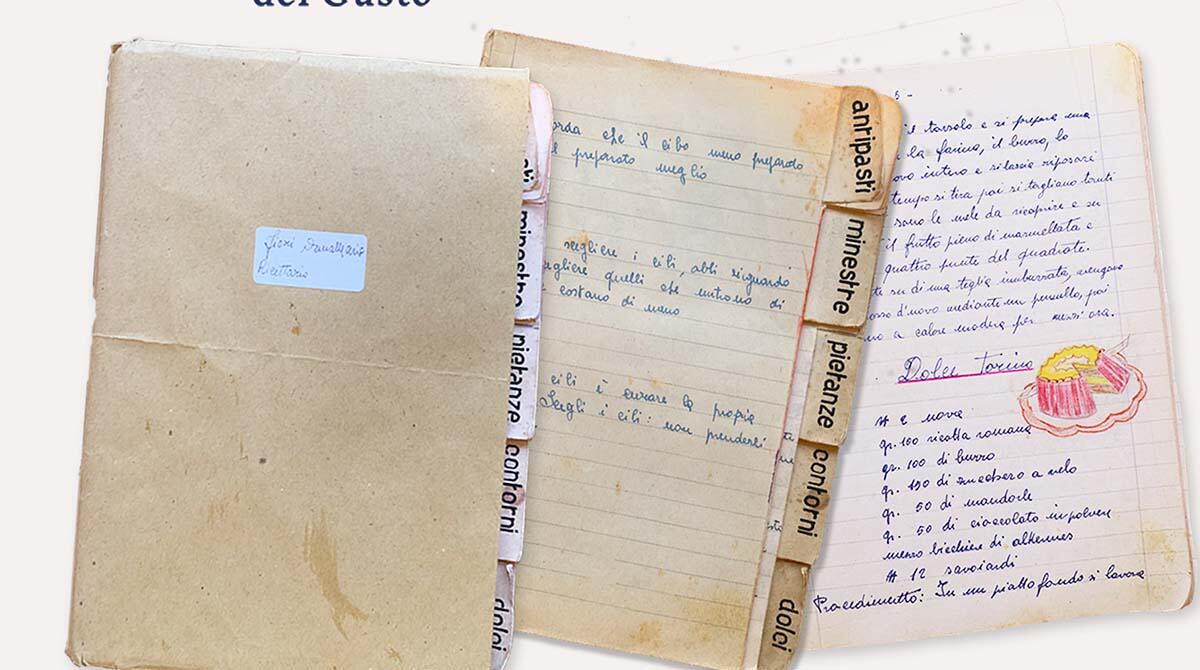 del Gusto
Ricettario
minestre
pietanze
contorni
dolci
orda che il cibo meno preparato
preparato meglio
scegliere i cibi, abbi riguardo
gliere quelli che entrano di
costano di meno
cibi è curare la propria
Scegli i cibi: non prenderti
antipasti
minestre
pietanze
contorni
dolci
5 -
il torsolo e si prepara una
la farina, il burro, lo
ovo intero e si lascia riposare
tempo si tira poi si tagliano tanti
sono le mele da ricoprire e su
il frutto pieno di marmellata e
quattro punte del quadrato.
su di una teglia imburrata, vengono
osso d'uovo mediante un pennello, poi
no a calore modera per mezz'ora.
Dolce Torino
# 2 uova
gr. 100 ricotta romana
gr. 100 di burro
gr. 150 di zucchero a velo
gr. 50 di mandorle
gr. 50 di cioccolato in polvere
mezzo bicchiere di alkermes
# 12 savoiardi
Procedimento: In un piatto fondo si lavora